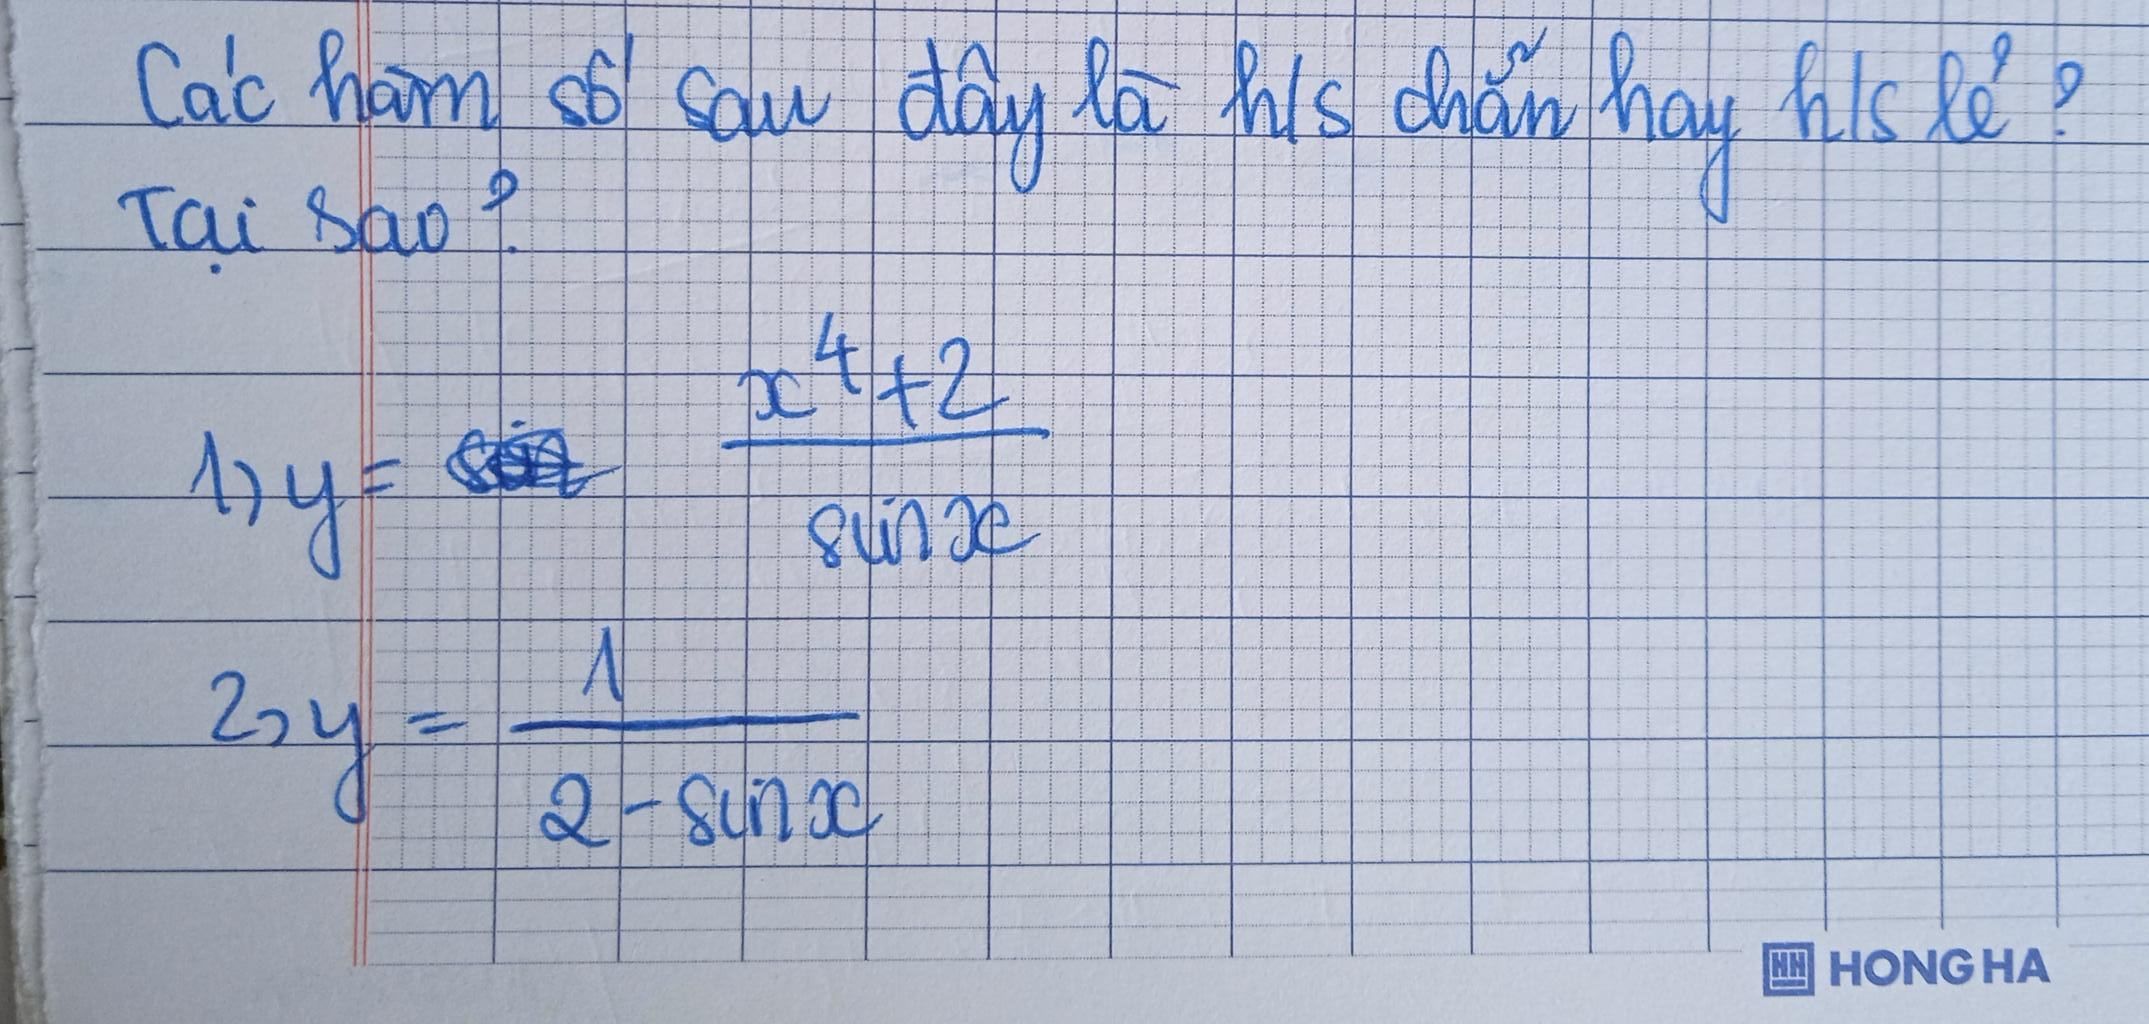 Các hàm số sau đây là h/s chẵn hay h/s lẻ?
Tại sao?
1, y = \frac{x^4+2}{sin x}
2, y = \frac{1}{2 - sin x}
HH HONG HA